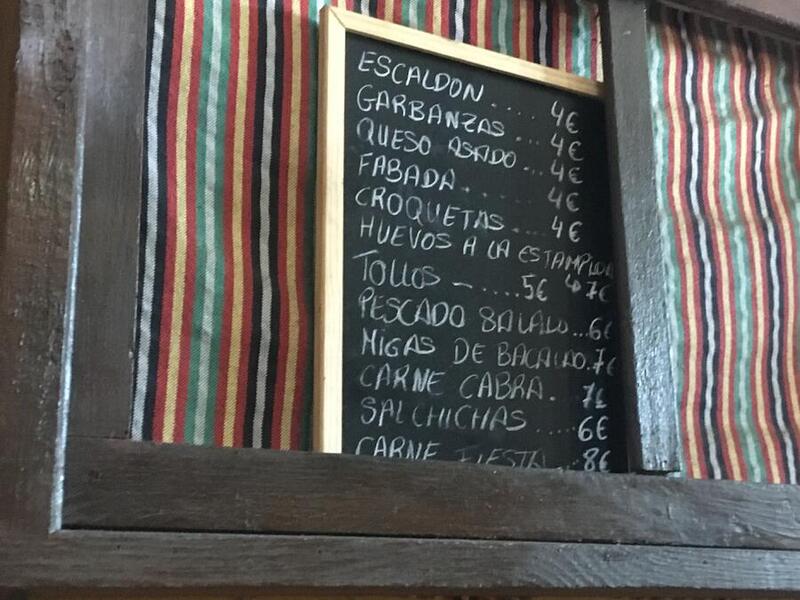 ESCALDON .... 4€
GARBANZAS ... 4€
QUESO ASADO ... 4€
FABADA. ..... 4€
CROQUETAS ... 4€
HUEVOS A LA
↳ 7€
TOLLOS - ..... 5€
PESCADO SALADO ... 6€
MIGAS DE BACALAO. 7€
CARNE CABRA. . 7€
SALCHICHAS .... 6€
CARNE FIESTA ... 8€